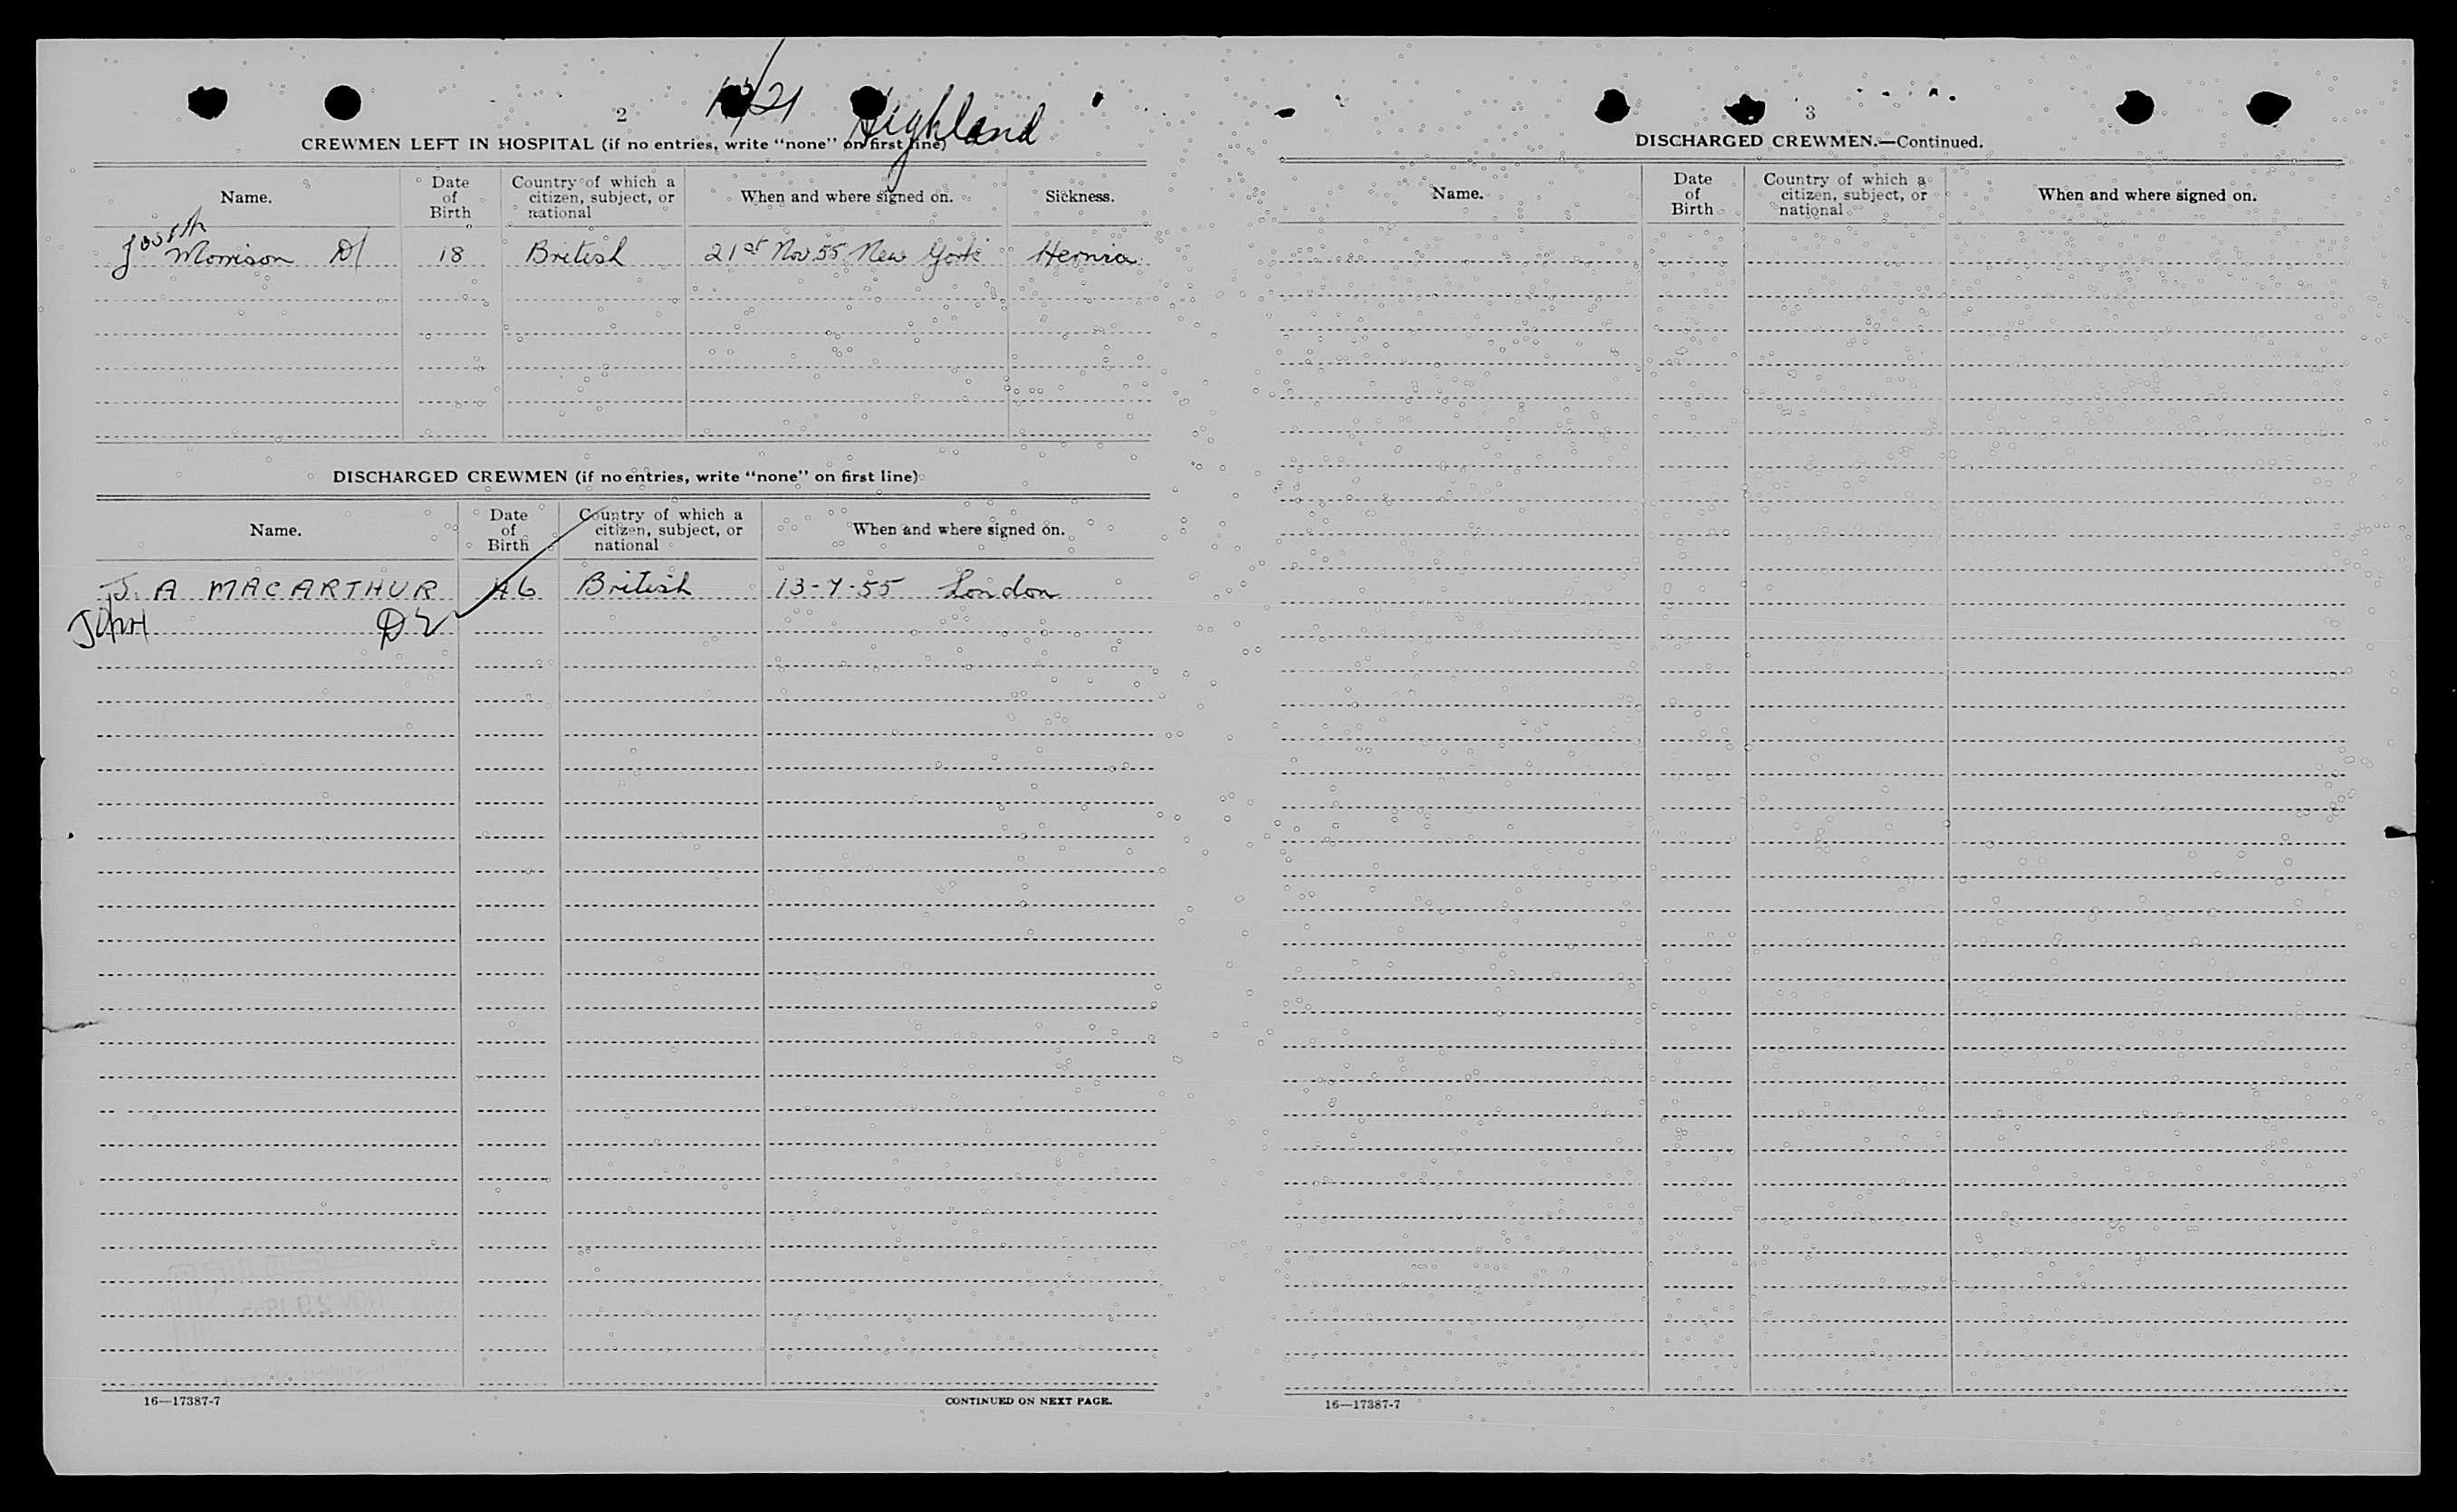 2
Highland
CREWMEN LEFT IN HOSPITAL (if no entries, write “none” on first line)
Name. Date of Birth Country of which a citizen, subject, or national When and where signed on. Sickness.
Joseph
Morrison D1 18 British 21st Nov 55 New York Hernia
DISCHARGED CREWMEN (if no entries, write “none” on first line)
Name. Date of Birth Country of which a citizen, subject, or national When and where signed on.
J. A MACARTHUR 46 British 13-7-55 London
JOHN D2
NOV 29 1955
16—17387-7 CONTINUED ON NEXT PAGE.
3
DISCHARGED CREWMEN.—Continued.
Name. Date of Birth Country of which a citizen, subject, or national When and where signed on.
16—17387-7